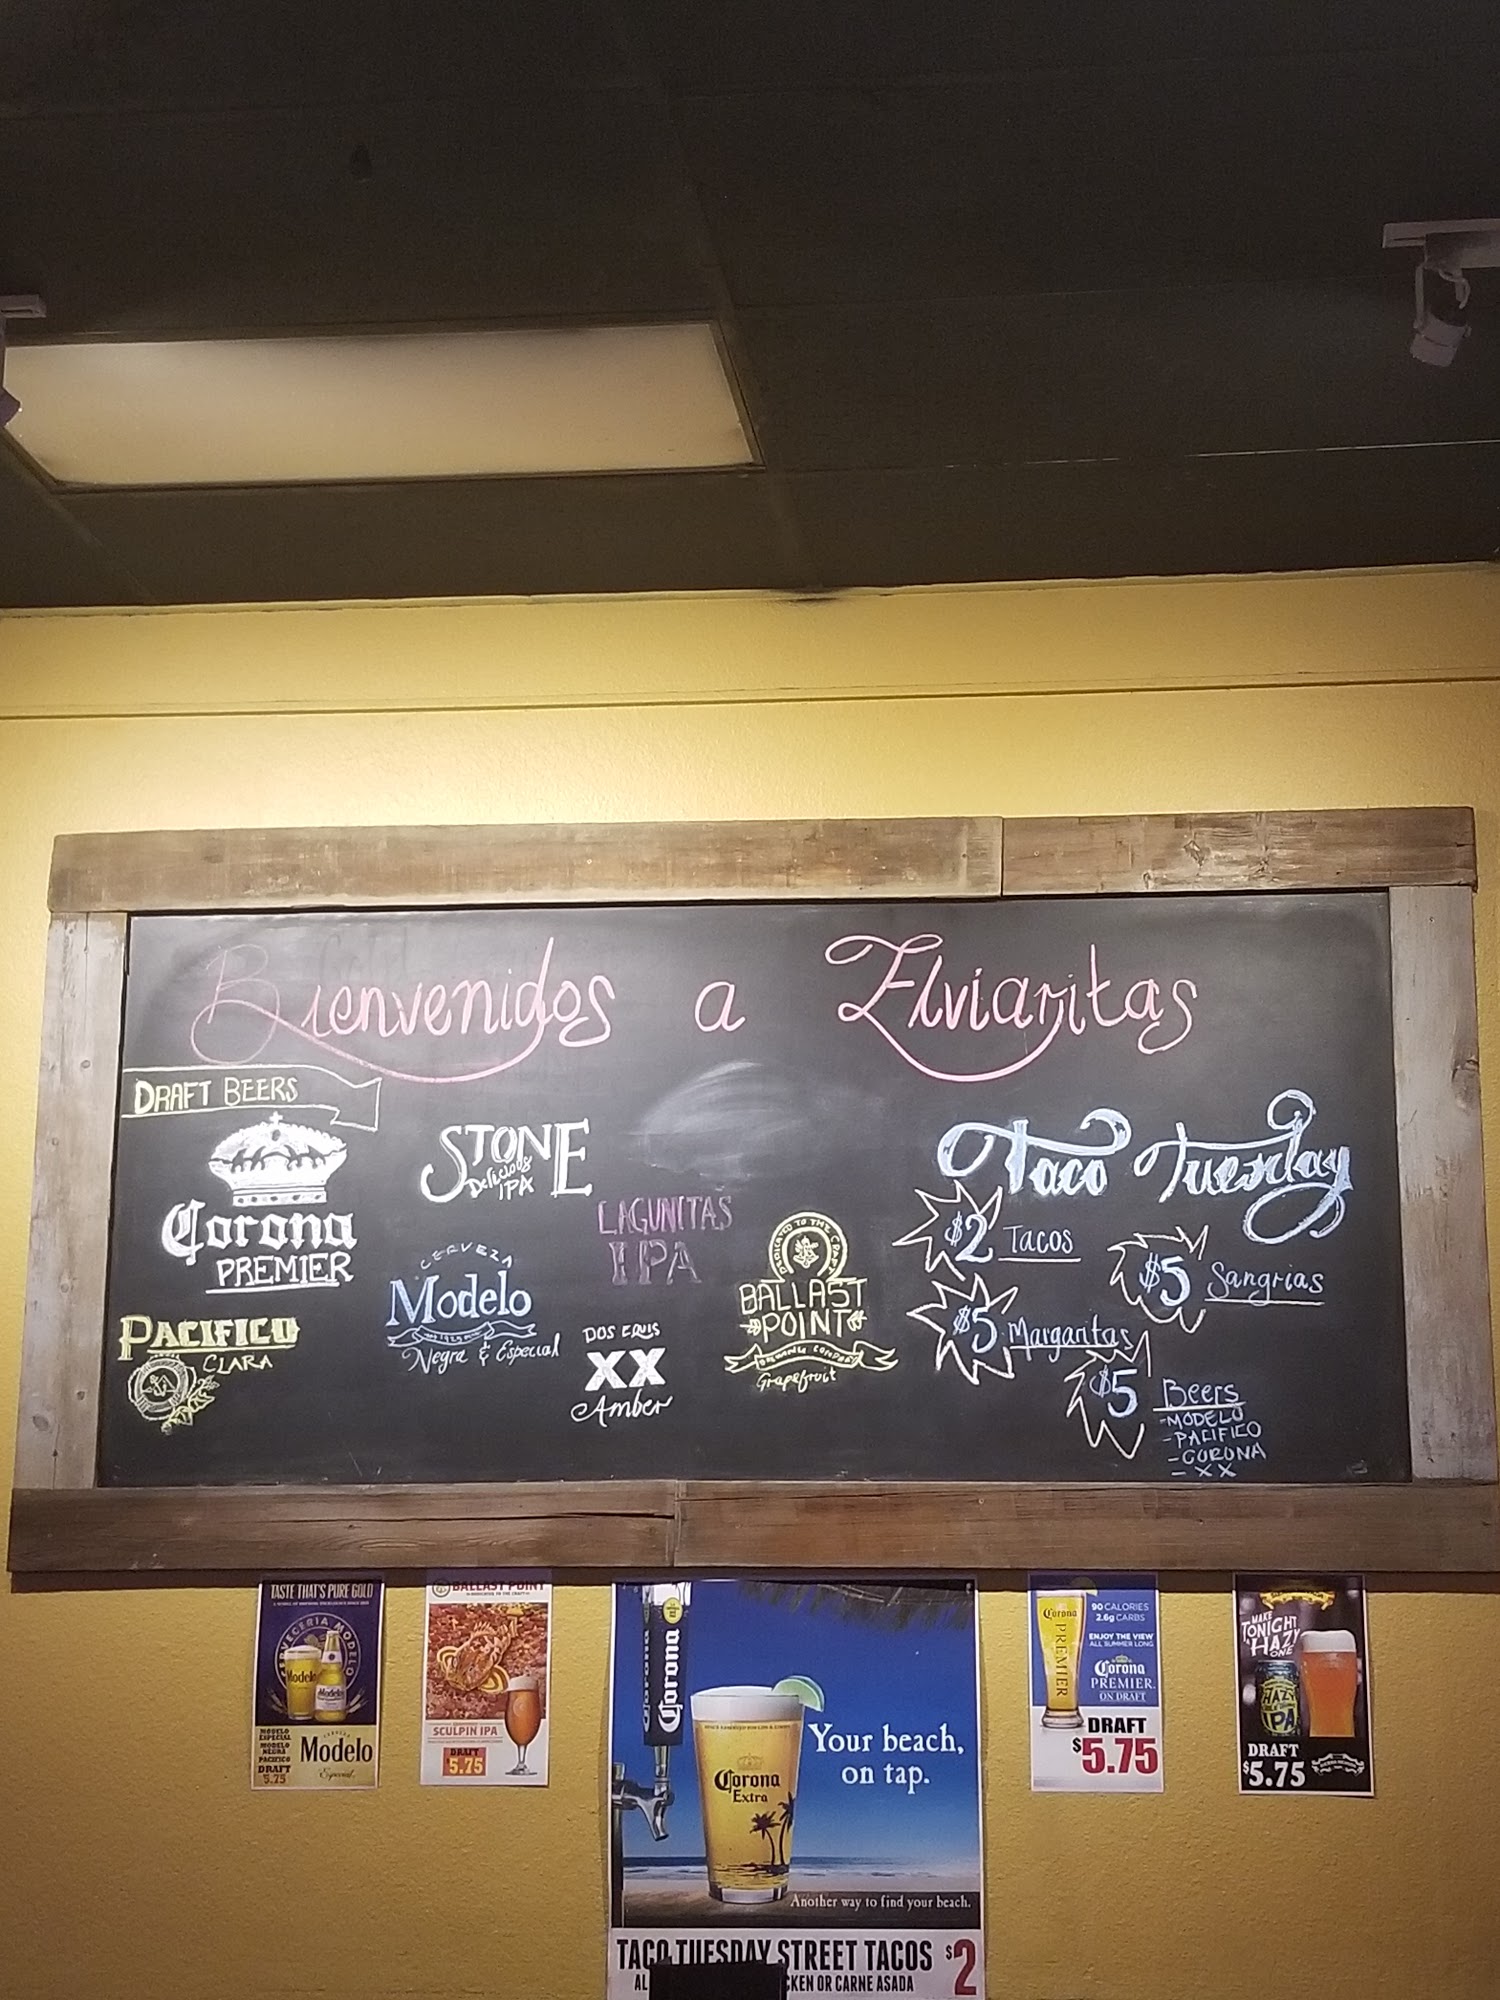 Bienvenidos a Elviaritas
DRAFT BEERS
Corona
PREMIER
PACIFICO
CLARA
STONE
Delicious
IPA
CERVEZA
Modelo
Negra & Especial
LAGUNITAS
IPA
DOS EQUIS
XX
Amber
DEDICATED TO THE CRAFT
BALLAST
POINT
Grapefruit
Taco Tuesday
$2 TACOS
$5 Sangrias
$5 Margaritas
$5 Beers
-MODELO
-PACIFICO
-CORONA
-XX
TASTE THAT'S PURE GOLD
CERVECERIA MODELO
Modelo
MODELO
ESPECIAL
MODELO
NEGRA
PACIFICO
DRAFT
5.75
Modelo
Especial
BALLAST POINT
SCULPIN IPA
DRAFT
5.75
Corona
Corona
Corona
Extra
Your beach,
on tap.
Another way to find your beach.
TACO TUESDAY STREET TACOS $2
AL
CKEN OR CARNE ASADA
Corona
PREMIER
90 CALORIES
2.6g CARBS
ENJOY THE VIEW
ALL SUMMER LONG
Corona
PREMIER.
ON DRAFT
DRAFT
$5.75
MAKE
TONIGHT
A HAZY
ONE
HAZY
IPA
DRAFT
$5.75